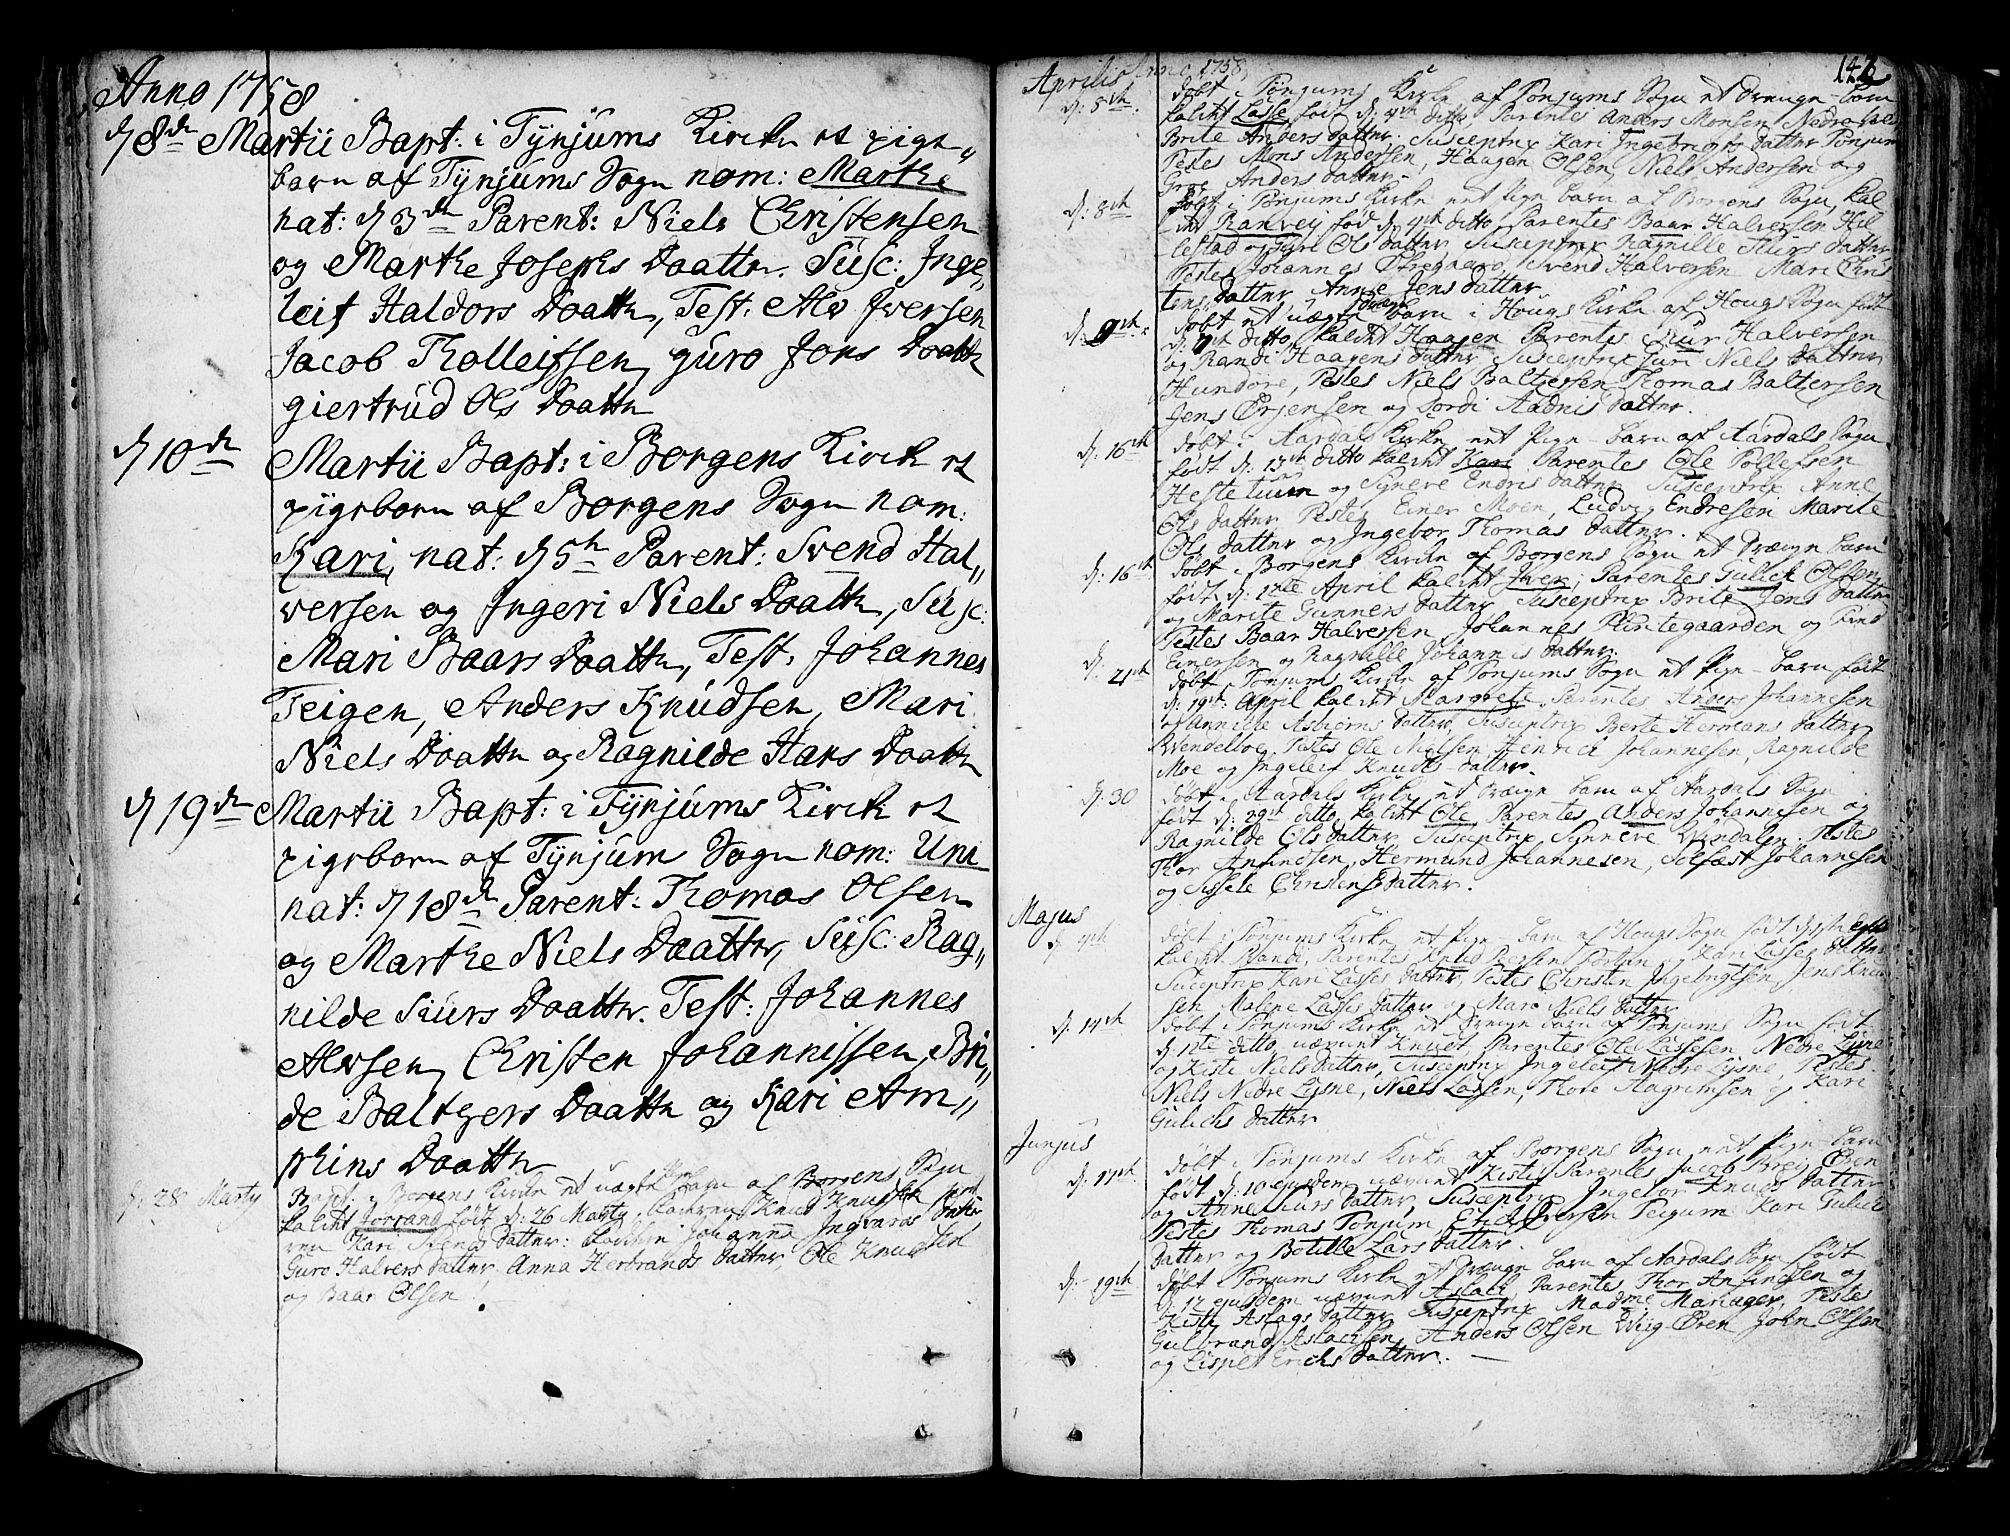 Anno 1758
d 8de Martii Bapt: i Tÿnjums Kirche et pige„
barn af Tÿnjums Sogn nom: Marthe
nat: d 3de Parent: Niels Christensen
og Marthe Josephs Daatter. Susc: Inge„
leif Haldors Daatter, Test: Alv Iversen
Jacob Tholleifssen, guro Jons Daatter
giertrud Ols Daatter
d 10de Martii Bapt: i Borgens Kirche et
pigebarn af Borgens Sogn nom:
Kari, nat: d 5th Parent: Svend Hal„
versen og Ingeri Niels Daatter, Susc:
Mari Baars Daatter, Test: Johannes
Teigen, Anders Knudsen, Mari
Niels Daatter og Ragnilde Hans Daatter
d 19de Martii Bapt: i Tÿnjums Kirche et
pigebarn af Tÿnjum Sogn nom: Uni
nat: d 18de Parent: Thomas Olsen
og Marthe Niels Daatter, Susc: Rag„
nilde Siurs Daatter. Test: Johannes
Alvsen, Christen Johannissen, Bri„
de Baltzers Daatter og Kari Am„
phins Daatter
d. 28 Marty Bapt. i Borgens Kirke et uægte barn af Borgens Sogn
kaldt Jorrand født d: 26 Marty, Knud Knudsen
Kari Svends datter: Johanna Ingvaras
Guro Halvers datter, Anna Herbrands datter, Ole Knudsen
og Baar Olsen
Aprilis Anno 1758
142
d: 8th døbt i Tønjums Kirke af Tønjums Sogn et Drænge-barn
kaldt Lasse født d: 4th ditto Parentes Anders Monsen Nedre
Brite Anders datter. Susceptrix Kari Ingebrigts datter Tønjum
Testes Mons Andersen, Haagen Olsen, Niels Andersen og
Groe Anders datter.
d: 8th døbt i Tønjums Kirke et Pige barn af Borgens Sogn, kal
det Ranvej fød d: 4th ditto, Parentes Baar Halversen Hil
lestad og Gyri Ols datter, Susceptrix Ragnille Siurs datter
Testes Johannes, Svend Halversen Mari Chris
tens datter, Anne Jens datter.
d: 9th døbt et uægte drænge barn i Hougs Kirke af Hougs Sogn født
d: 7th ditto, kaldt Haagen Parentes Siur Halversen
og Randi Haagens datter Susceptrix Guri Niels datter
Hundøre, Testes Niels Baltzersen Thomas Baltersen
Jens Ørjensen og Dordi Aadnis datter.
d: 16th døbt i Aardals Kirke et Pige-barn af Aardals Sogn
født d: 13th ditto kaldt Kari Parentes Ole Tollefsen
Hestetuun og Signeve Endris datter Susceptrix Anne
Ols datter Testes Einer Moen, Ludvig Endresen Marite
Ols datter og Ingebor Thomas datter.
d: 16th døbt i Borgens Kirke af Borgens Sogn et Drænge barn
født d: 12te April kaldt Iver, Parentes Gullik Olsen
og Marite Gunners datter Susceptrix Brite Jens datter
Testes Baar Halversen Johannes Plirtegaarden og
Einersen og Ragnille Johannis datter.
d: 21th døbt i Tønjums Kirke af Tønjums Sogn et Pige-barn født
d: 19th April kaldt Margrete Parentes Anders Johannesen
og Annikke Asbiørns datter, Susceptrix Berte Hermans datter
Testes Ole Nielsen, Henrich Johannesen, Ragnilde
Moe og Ingeleif Knuds datter.
d: 30 døbt i Aardals Kirke et Drænge barn af Aardals Sogn
født d: 29th ditto, kaldt Ole, Parentes Anders Johannesen og
Ragnilde Ols datter Susceptrix Synneve Vindalen. Testes
Thor Anfindsen, Hermund Johannesen, Sollfæst Johannesen
og Sissele Christens datter.
Majus
døbt i Tønjums Kirke et Pige barn af Hougs Sogn født
kaldt Randi, Parentes Knud Persen og Kari Lasses datter
Susceptrix Kari Lasses datter, Testes Christen Ingebrigtsen Jens Knud
sen Malene Lasses datter og Mari Niels datter
d: 14th døbt i Tønjums Kirke et Drænge barn af Tønjums Sogn født
d: 1te ditto nævnt Knud, Parentes Ole Lassesen Nedre Lysne
og Kiste Niels datter, Susceptrix Ingeleif Nedre Lysne, Testes
Niels Nedre Lysne, Niels Lassen, Thore Aagrimsen og Kari
Gulichs datter
Junjus
d: 11th døbt i Tønjums Kirke af Borgens Sogn et Pige-barn
født d: 10 ejusdem nævnt Kisti Parentes Jacob Ørin
og Anne Siurs datter, Susceptrix Ingebor Knuds datter
Testes Thomas Tønjum Erich Iversen Teigum Kari Gulich
datter og Botille Lars datter.
d: 19th døbt i Tønjums Kirke et Drænge barn af Aardals Sogn født
d: 12 ejusdem nævnt Aslach Parentes Thor Anfindsen og
Kisti Aslags datter Susceptrix Madme Mariager, Testes
Gulbrand Aslachsen, Anders Olsen Wiig-Øren John Olsen
og Lispet Erichs datter.